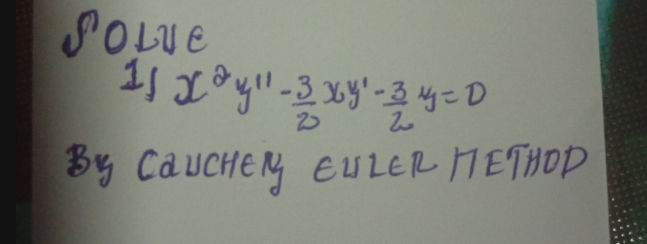 SOLVE
1) x²y'' - 3/2 xy' - 3/2 y = 0
By CAUCHEY EULER METHOD